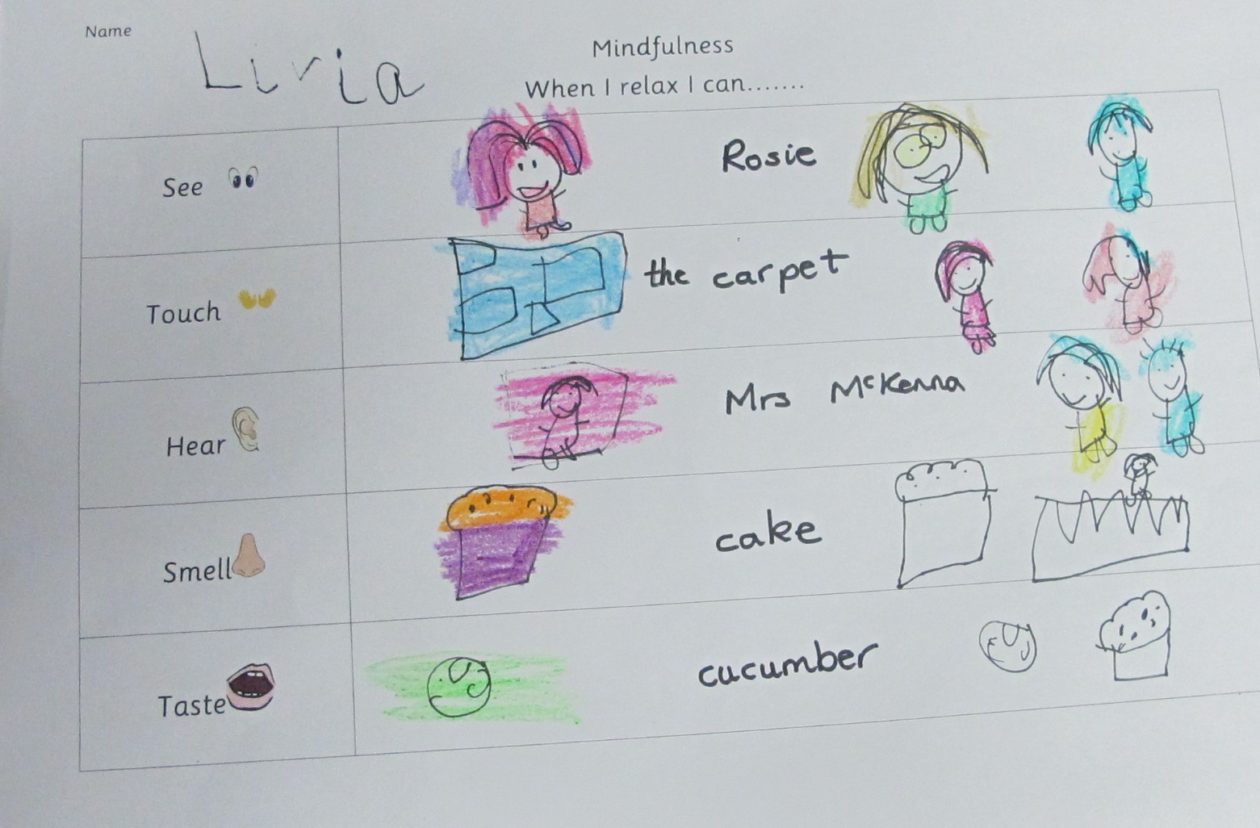 Name
Livia
Mindfulness
When I relax I can.......
See Rosie
Touch the carpet
Hear Mrs McKenna
Smell cake
Taste cucumber